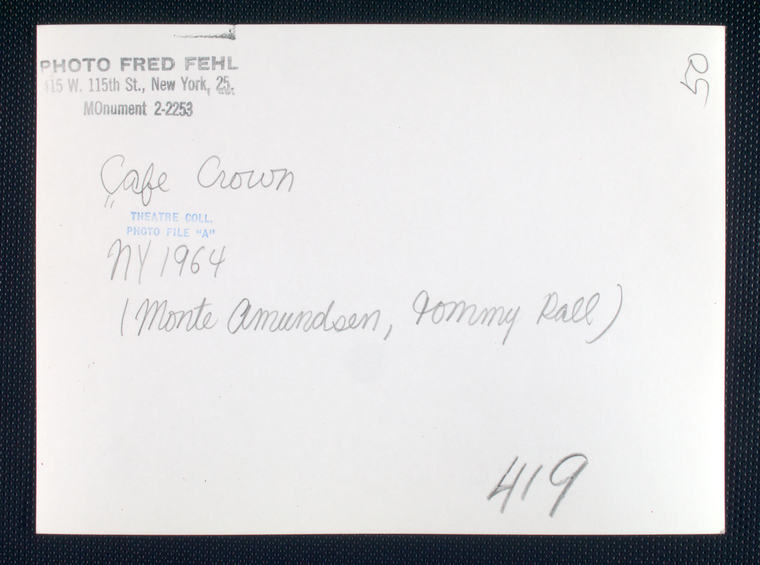 PHOTO FRED FEHL
415 W. 115th St., New York, 25,
MOnument 2-2253
50
Cafe Crown
"
THEATRE COLL.
PHOTO FILE "A"
NY 1964
(Monte Amundsen, Tommy Rall)
419